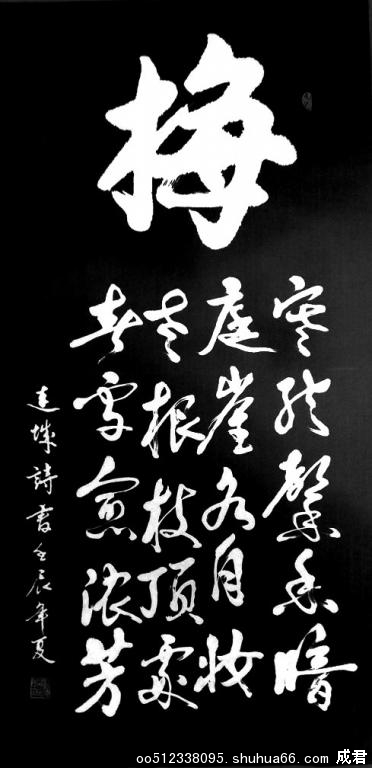 梅
寒馨香暗
庭崖各自妆
老根枝顶處
雪愈浓芳
連城詩書壬辰年夏
oo512338095.shuhua66.com 成君